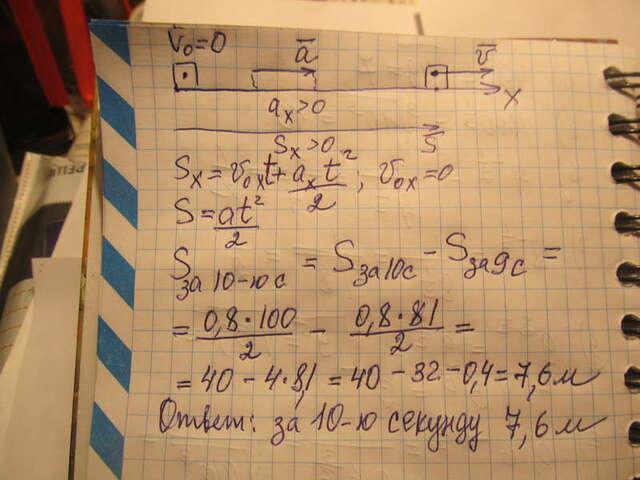 v̄₀=0 ā v̄
aₓ>0 x
Sₓ>0 S̄
Sₓ=v₀ₓt+aₓt²/2, v₀ₓ=0
S=at²/2
S за 10-ю с = S за 10с - S за 9с =
= 0,8·100/2 - 0,8·81/2 =
= 40 - 4·8,1 = 40 - 32 - 0,4 = 7,6 м
Ответ: за 10-ю секунду 7,6 м